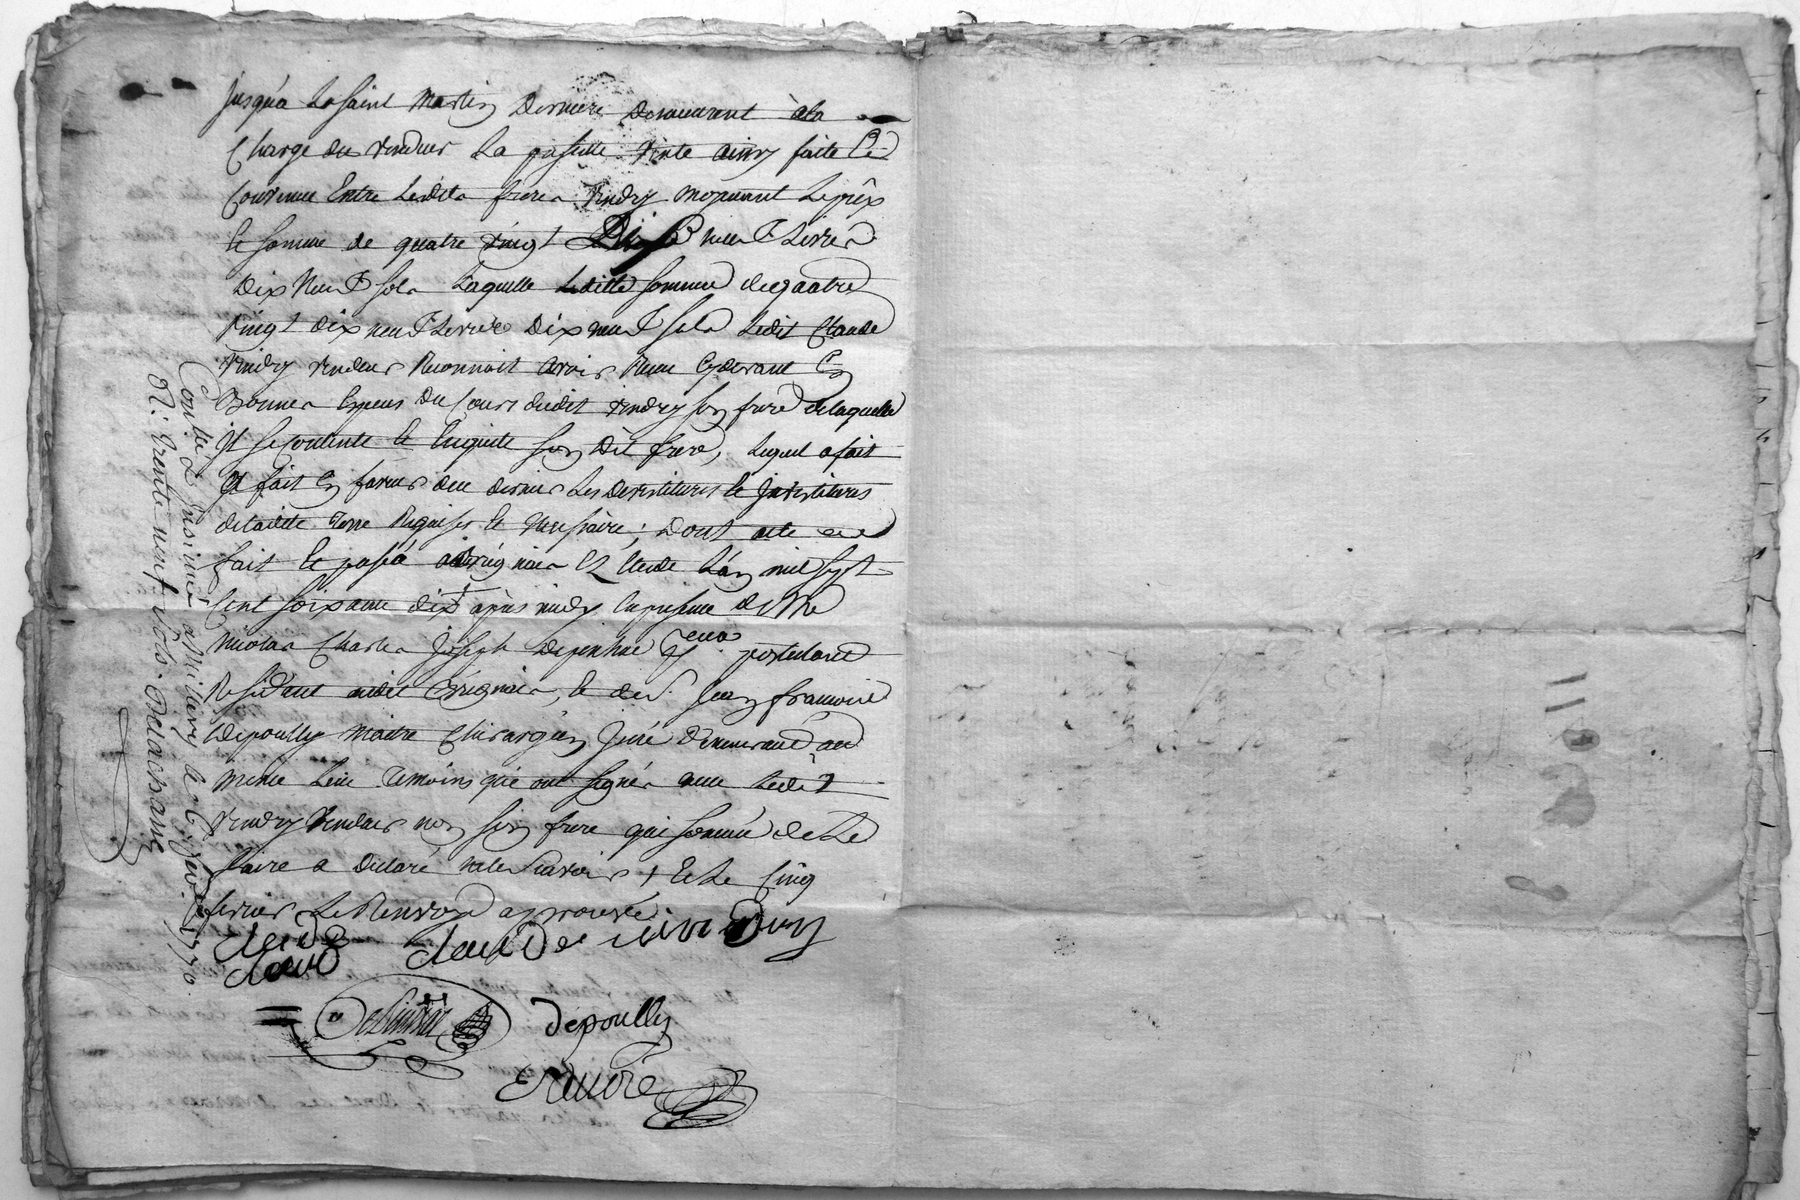 jusqu'a La saint Martin Derniere Demeurent à la
Charge du vendeur La presente vente ainsy faite Et
Convenue Entre Lesdits freres Vindry moyennant Le prix
Et somme de quatre vingt Dix neuf Livres
Dix Neuf sols Laquelle Laditte somme de quatre
vingt dix neuf Livres Dix neuf sols Ledit Claude
Vindry vendeur Reconnoit avoir Receu Cy devant En
Bonnes Especes Du Cours dudit Vindry son frere de laquelle
Il se contente Et En quitte son Dit frere, Lequel a fait
Et fait En faveur du dernier Les Devestitures Et Investitures
de ladite Terre Requises Et Necessaires; Dont acte
fait Et passé à Brignais En L'etude L'an mil sept
Cent soixante dix + apres midy En presence de Me
Nicolas Charles Joseph postulant
Residant audit Brignais, Et de Sr. Jean françois
Depoully Maitre Chirurgien Juré Demeurant au
meme Lieu Temoins qui ont signés avec Ledit
Vindry Vendeur non son frere qui sommé de Le
faire a Declaré ne le scavoir + Et Le Cinq
fevrier Le Renvoy approuvé
claude
claude vindry
depoully
Controllé & Insinué a Millery le 6. fev. 1770.
R. Trente neuf sols. Delachsane